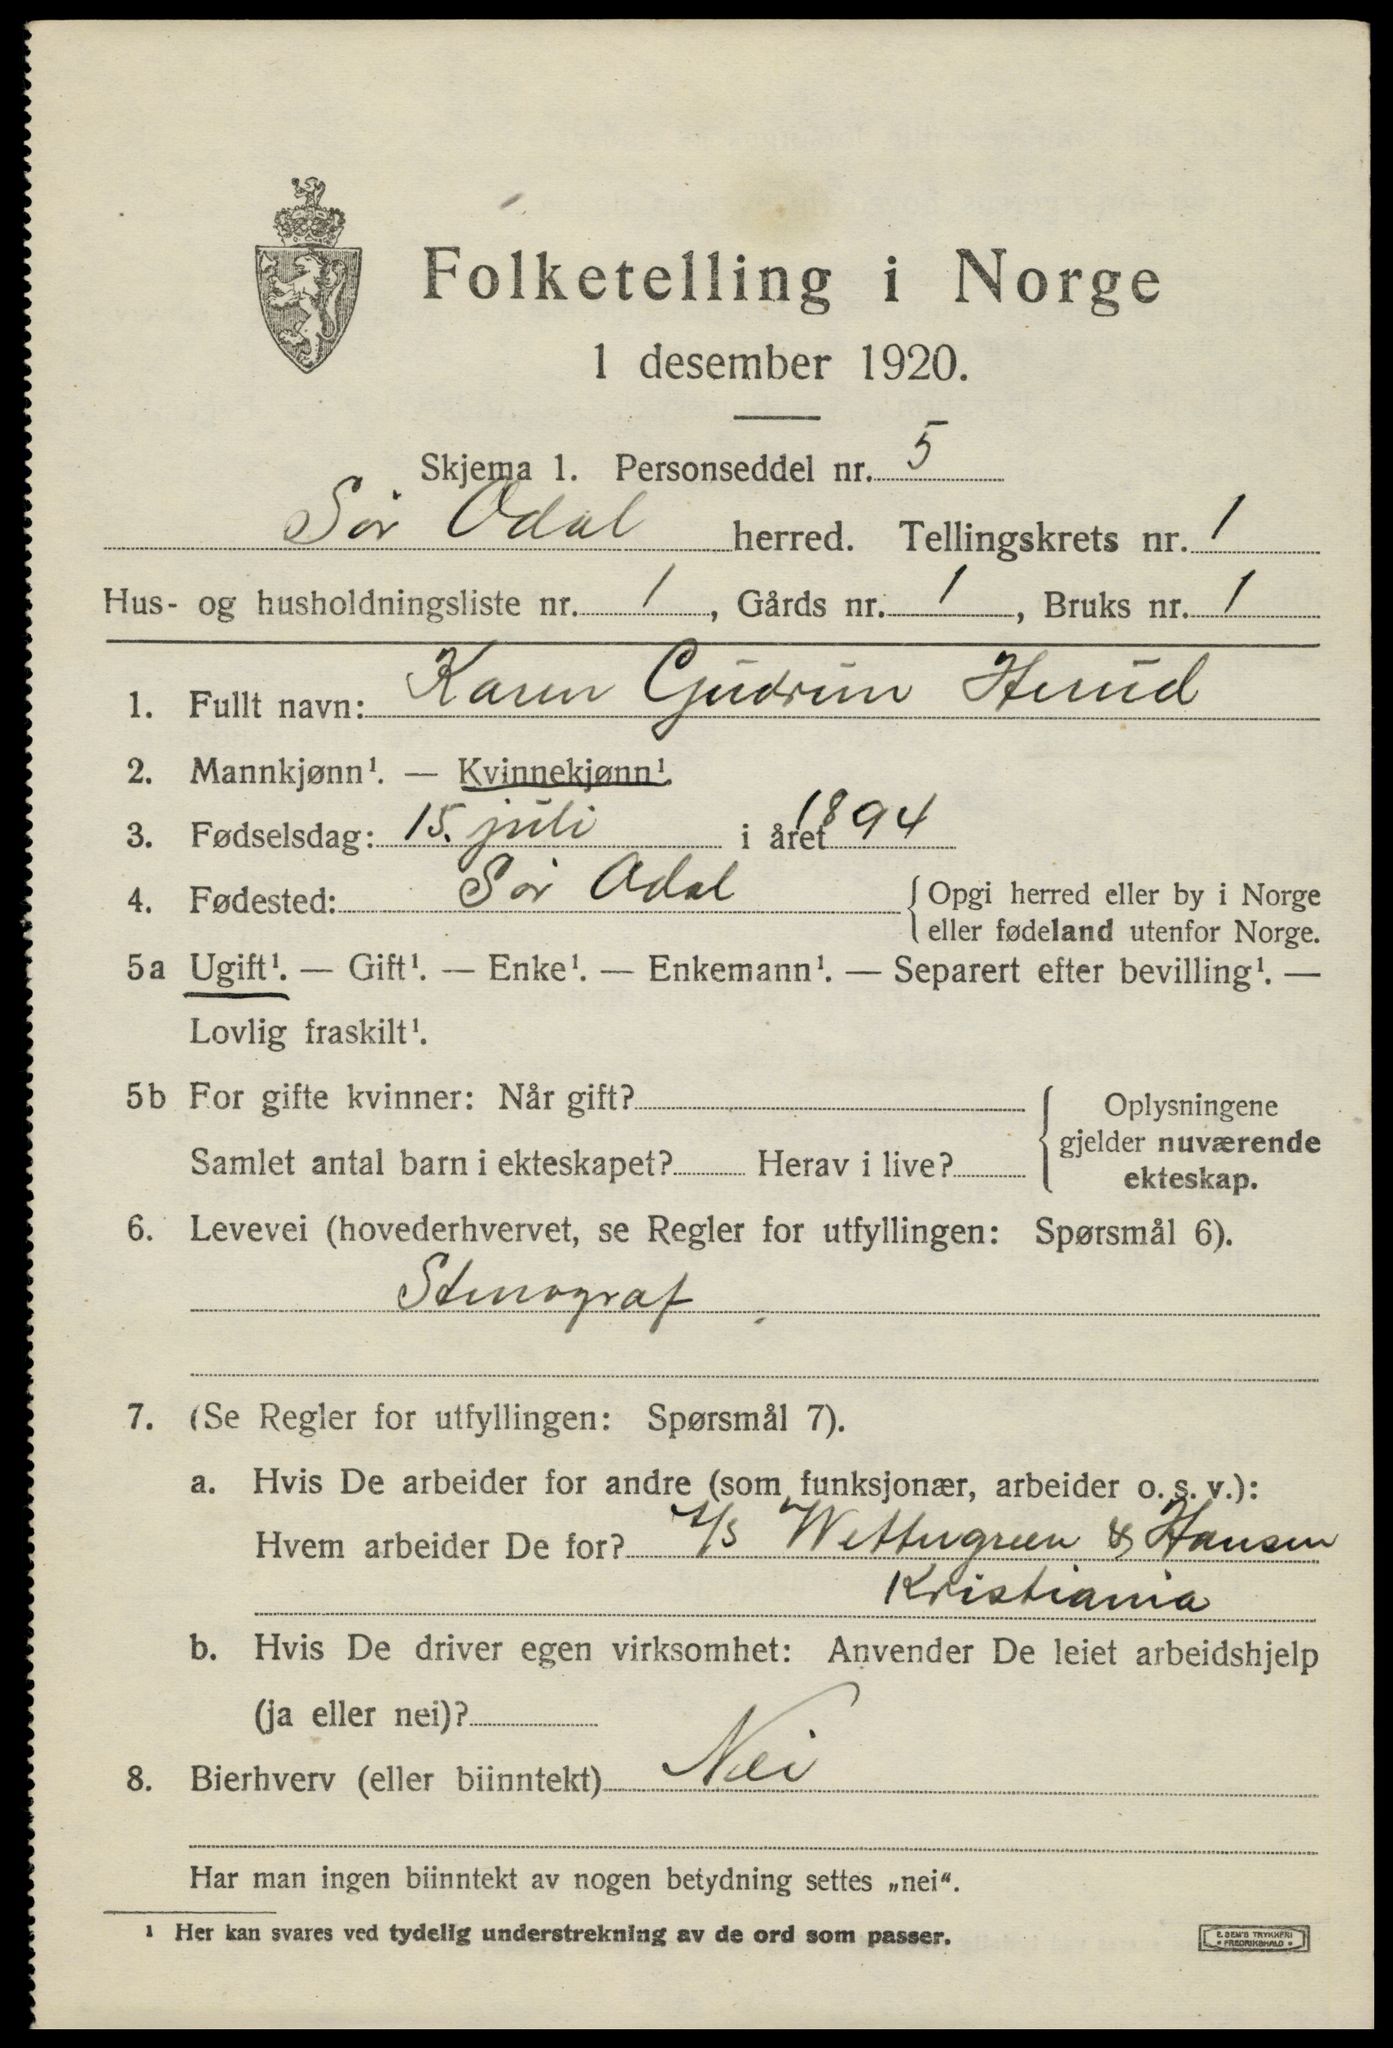 Folketelling i Norge
1 desember 1920.
Skjema 1. Personseddel nr. 5
Sör Odal herred. Tellingskrets nr. 1
Hus- og husholdningsliste nr. 1, Gårds nr. 1, Bruks nr. 1
1. Fullt navn: Karen Gudrun Herud
2. Mannkjønn¹. — Kvinnekjønn¹.
3. Fødselsdag: 15. juli i året 1894
4. Fødested: Sör Odal { Opgi herred eller by i Norge
eller fødeland utenfor Norge.
5a Ugift¹. — Gift¹. — Enke¹. — Enkemann¹. — Separert efter bevilling¹. —
Lovlig fraskilt¹.
5b For gifte kvinner: Når gift? { Oplysningene
gjelder nuværende
Samlet antal barn i ekteskapet? Herav i live? ekteskap.
6. Levevei (hovederhvervet, se Regler for utfyllingen: Spørsmål 6).
Stenograf
7. (Se Regler for utfyllingen: Spørsmål 7).
a. Hvis De arbeider for andre (som funksjonær, arbeider o. s. v.):
Hvem arbeider De for? A/S Wettergreen & Hansen
Kristiania
b. Hvis De driver egen virksomhet: Anvender De leiet arbeidshjelp
(ja eller nei)?
8. Bierhverv (eller biinntekt) Nei
Har man ingen biinntekt av nogen betydning settes „nei“.
¹ Her kan svares ved tydelig understrekning av de ord som passer.
E. SEM'S TRYKKERI
• FREDRIKSHALD •